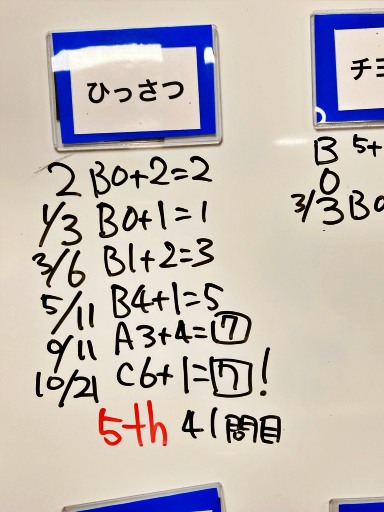 ひっさつ
2 B0+2=2
1/3 B0+1=1
3/6 B1+2=3
5/11 B4+1=5
9/11 A3+4=7
10/21 C6+1=7!
5th 41問目
チヨ
B 5+
0
3/3 B0